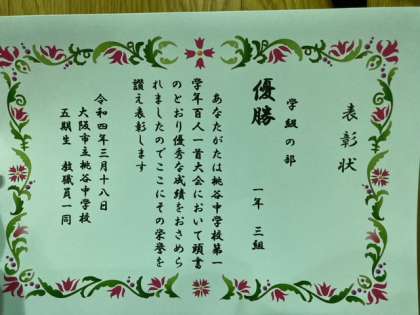 表彰状
学級の部
優勝
一年 三組
あなたがたは桃谷中学校第一
学年百人一首大会において頭書
のとおり優秀な成績をおさめら
れましたのでここにその栄誉を
讃え表彰します
令和四年三月十八日
大阪市立桃谷中学校
五期生 教職員一同